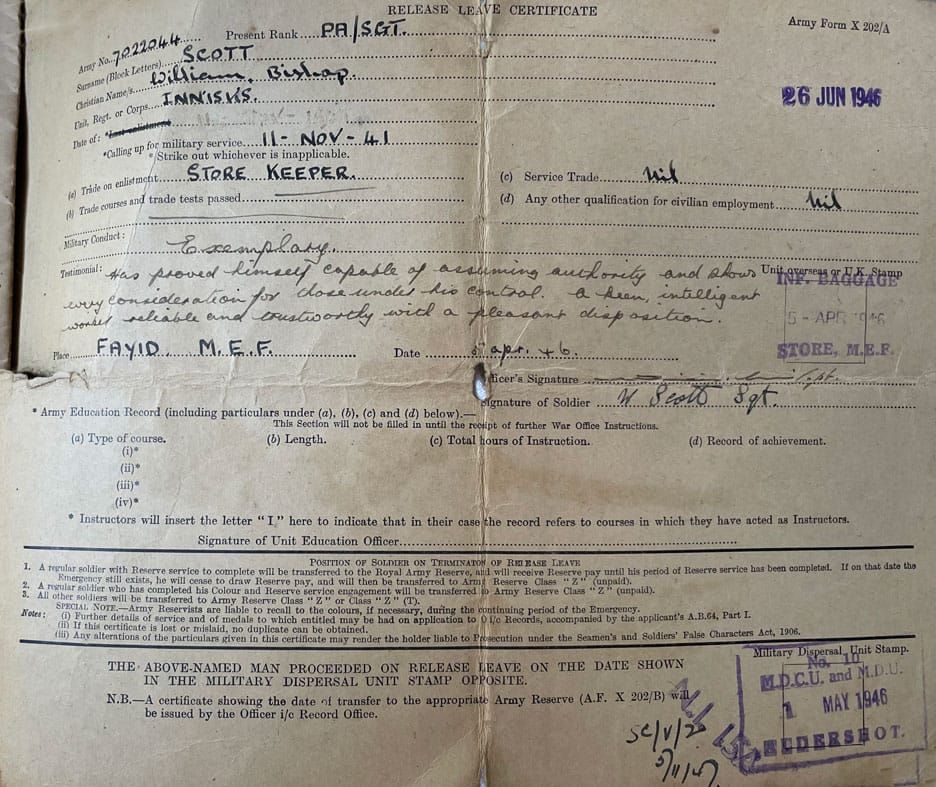 RELEASE LEAVE CERTIFICATE
Army Form X 202/A
Army No. 7022044 Present Rank PA/SGT.
Surname (Block Letters) SCOTT
Christian Name/s William, Bishop.
Unit, Regt. or Corps INNISKS.
26 JUN 1946
Date of: *Last enlistment
*Calling up for military service 11-NOV-41
*Strike out whichever is inapplicable.
(a) Trade on enlistment STORE KEEPER. (c) Service Trade Nil
(b) Trade courses and trade tests passed (d) Any other qualification for civilian employment Nil
Military Conduct: Exemplary.
Testimonial: Has proved himself capable of assuming authority and shows
very consideration for those under his control. A keen, intelligent
worker reliable and trustworthy with a pleasant disposition.
Unit overseas or U.K. Stamp
INF. BAGGAGE
5 - APR 1946
STORE, M.E.F.
Place FAYID, M.E.F. Date 5 Apr. 46.
Officer's Signature
Signature of Soldier W Scott Sgt.
* Army Education Record (including particulars under (a), (b), (c) and (d) below).—
This Section will not be filled in until the receipt of further War Office Instructions.
(a) Type of course. (b) Length. (c) Total hours of Instruction. (d) Record of achievement.
(i)*
(ii)*
(iii)*
(iv)*
* Instructors will insert the letter "I" here to indicate that in their case the record refers to courses in which they have acted as Instructors.
Signature of Unit Education Officer
POSITION OF SOLDIER ON TERMINATON OF RELEASE LEAVE
1. A regular soldier with Reserve service to complete will be transferred to the Royal Army Reserve, and will receive Reserve pay until his period of Reserve service has been completed. If on that date the
Emergency still exists, he will cease to draw Reserve pay, and will then be transferred to Army Reserve Class "Z" (unpaid).
2. A regular soldier who has completed his Colour and Reserve service engagement will be transferred to Army Reserve Class "Z" (unpaid).
3. All other soldiers will be transferred to Army Reserve Class "Z" or Class "Z" (T).
SPECIAL NOTE.—Army Reservists are liable to recall to the colours, if necessary, during the continuing period of the Emergency.
Notes: (i) Further details of service and of medals to which entitled may be had on application to O i/c Records, accompanied by the applicant's A.B.64, Part I.
(ii) If this certificate is lost or mislaid, no duplicate can be obtained.
(iii) Any alterations of the particulars given in this certificate may render the holder liable to Prosecution under the Seamen's and Soldiers' False Characters Act, 1906.
THE ABOVE-NAMED MAN PROCEEDED ON RELEASE LEAVE ON THE DATE SHOWN
IN THE MILITARY DISPERSAL UNIT STAMP OPPOSITE.
N.B.—A certificate showing the date of transfer to the appropriate Army Reserve (A.F. X 202/B) will
be issued by the Officer i/c Record Office.
Military Dispersal Unit Stamp.
No. 10
M.D.C.U. and M.D.U.
1 MAY 1946
ALDERSHOT.
5/11/47